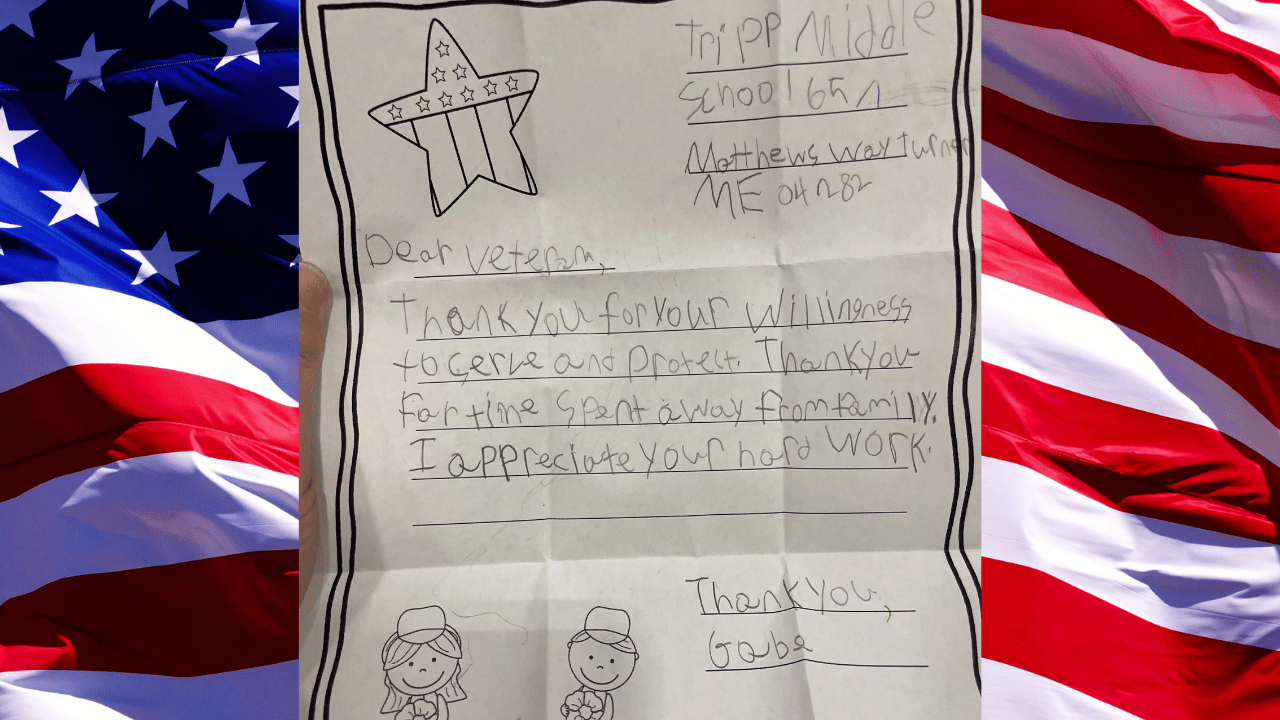 Tripp Middle
School 65 1
Matthews Way Turner
ME 04282
Dear Veteran,
Thank you for your Willingness
to serve and protect. Thank you
for time spent away from family.
I appreciate your hard work.
Thank you,
Gabe